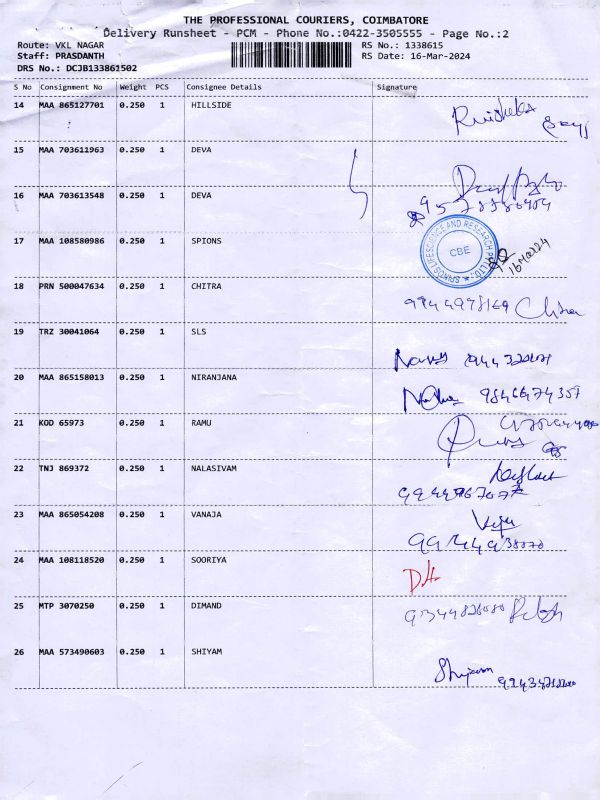 THE PROFESSIONAL COURIERS, COIMBATORE
Delivery Runsheet - PCM - Phone No.:0422-3505555 - Page No.:2
Route: VKL NAGAR RS No.: 1338615
Staff: PRASDANTH RS Date: 16-Mar-2024
DRS No.: DCJB133861502
S No Consignment No Weight PCS Consignee Details Signature
14 MAA 865127701 0.250 1 HILLSIDE
15 MAA 703611963 0.250 1 DEVA
16 MAA 703613548 0.250 1 DEVA
17 MAA 108580986 0.250 1 SPIONS
SPINOS LIFESCIENCE AND RESEARCH PVT LTD.,
CBE
18 PRN 500047634 0.250 1 CHITRA
9944978169 Chitra
19 TRZ 30041064 0.250 1 SLS
20 MAA 865158013 0.250 1 NIRANJANA
21 KOD 65973 0.250 1 RAMU
22 TNJ 869372 0.250 1 NALASIVAM
23 MAA 865054208 0.250 1 VANAJA
24 MAA 108118520 0.250 1 SOORIYA
25 MTP 3070250 0.250 1 DIMAND
26 MAA 573490603 0.250 1 SHIYAM